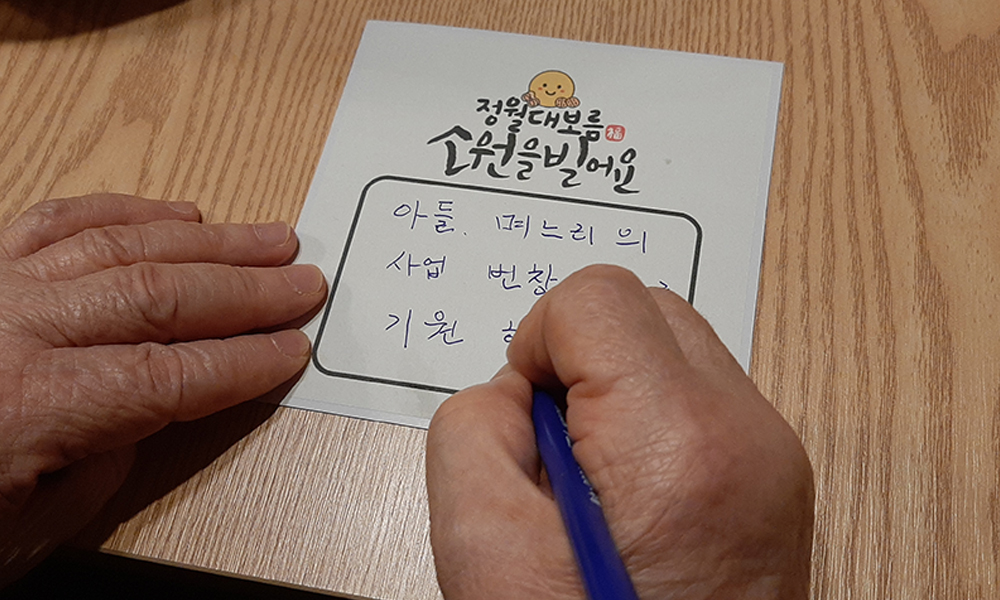 정월대보름
福
소원을빌어요
아들. 며느리의
사업 번창
기원